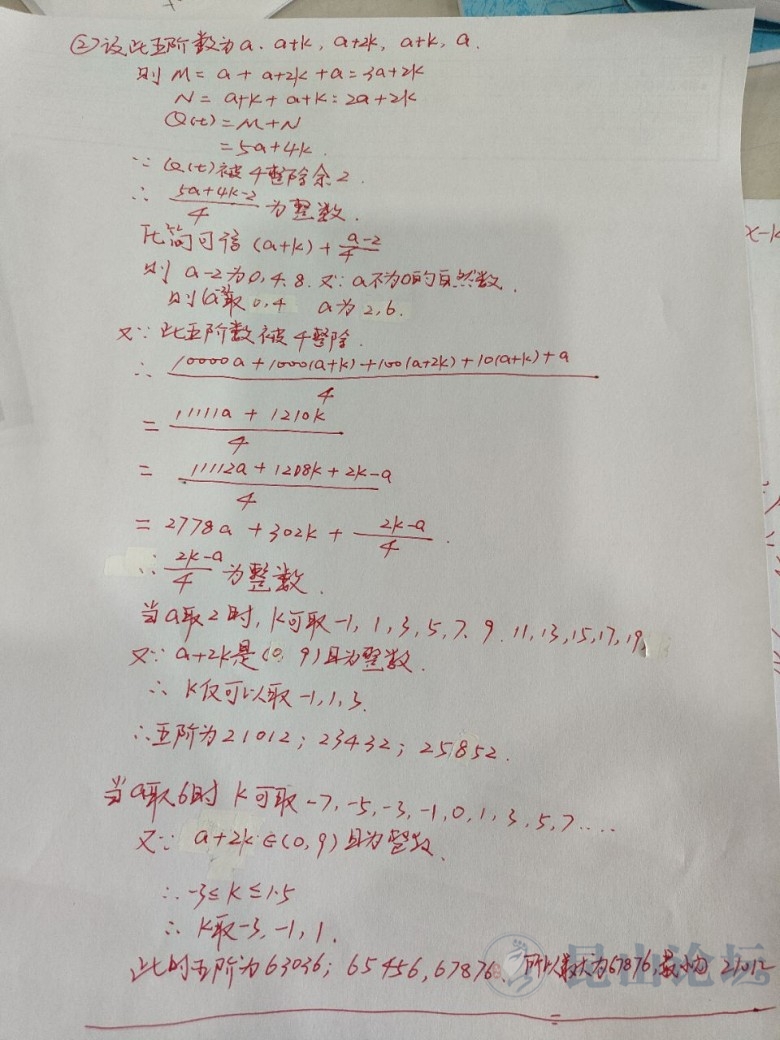 ②设此五阶数为a、a+k, a+2k, a+k, a.
则 M = a + a+2k + a = 3a+2k
N = a+k + a+k = 2a+2k
Q(t) = M+N
= 5a+4k.
∵ Q(t)被4整除余2.
∴ (5a+4k-2)/4 为整数.
化简可得 (a+k) + (a-2)/4
则 a-2为0,4.8. 又∵a不为0的自然数.
则 取0,4 a为2,6.
又∵此五阶数被4整除.
∴ (10000a+1000(a+k)+100(a+2k)+10(a+k)+a)/4
= (11111a + 1210k)/4
= (11112a + 1208k + 2k-a)/4
= 2778a + 302k + (2k-a)/4
∴ (2k-a)/4 为整数.
当a取2时, k可取-1, 1, 3, 5, 7, 9. 11, 13, 15, 17, 19,
又∵ a+2k是(0, 9)且为整数.
∴ k仅可以取 -1, 1, 3.
∴五阶为21012; 23432; 25852.
当a取6时 k可取 -7, -5, -3, -1, 0, 1, 3, 5, 7....
又∵ a+2k∈(0, 9)且为整数.
∴ -3≤k≤1.5
∴ k取-3, -1, 1.
此时五阶为63036; 65456, 67876. 所以最大为67876,最小为 21012
昆山论坛